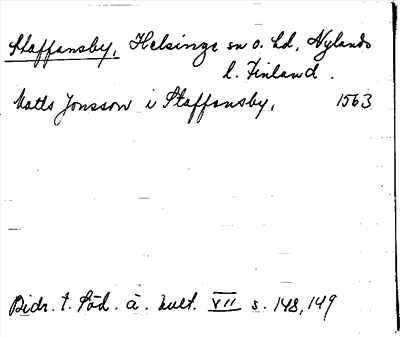 Staffansby, Helsinge sn o. hd, Nylands
l. Finland.
Matts Jonsson i Staffansby, 1563
Bidr. t. Söd. ä. kult. VII s. 148, 149